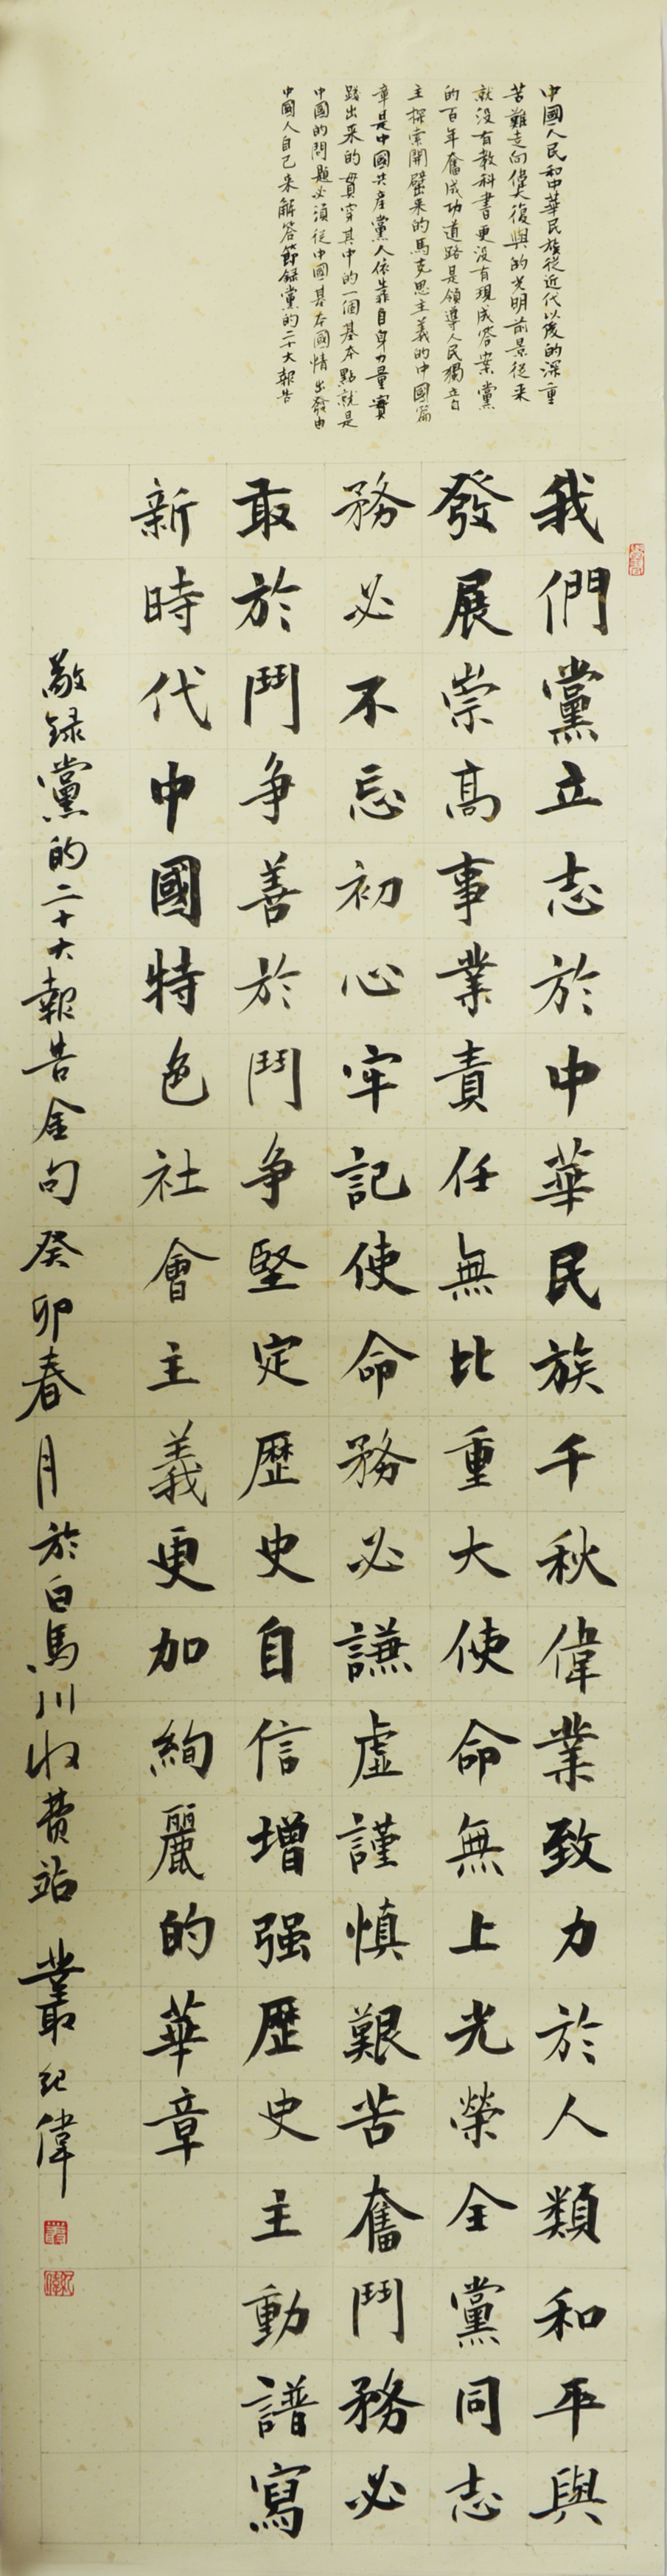 中國人民和中華民族從近代以後的深重
苦難走向偉大復興的光明前景從来
就没有教科書更没有現成答案黨
的百年奮成功道路是領導人民獨立自
主探索開闢来的馬克思主義的中國篇
章是中國共産黨人依靠自身力量實
踐出来的貫穿其中的一個基本點就是
中國的問題必須從中國基本國情出發由
中國人自己来解答節録黨的二十大報告
我們黨立志於中華民族千秋偉業致力於人類和平與
發展崇高事業責任無比重大使命無上光榮全黨同志
務必不忘初心牢記使命務必謙虚謹慎艱苦奮鬥務必
敢於鬥争善於鬥争堅定歷史自信增强歷史主動譜寫
新時代中國特色社會主義更加絢麗的華章
敬録黨的二十大報告金句癸卯春月於白馬川收费站 叢紀偉